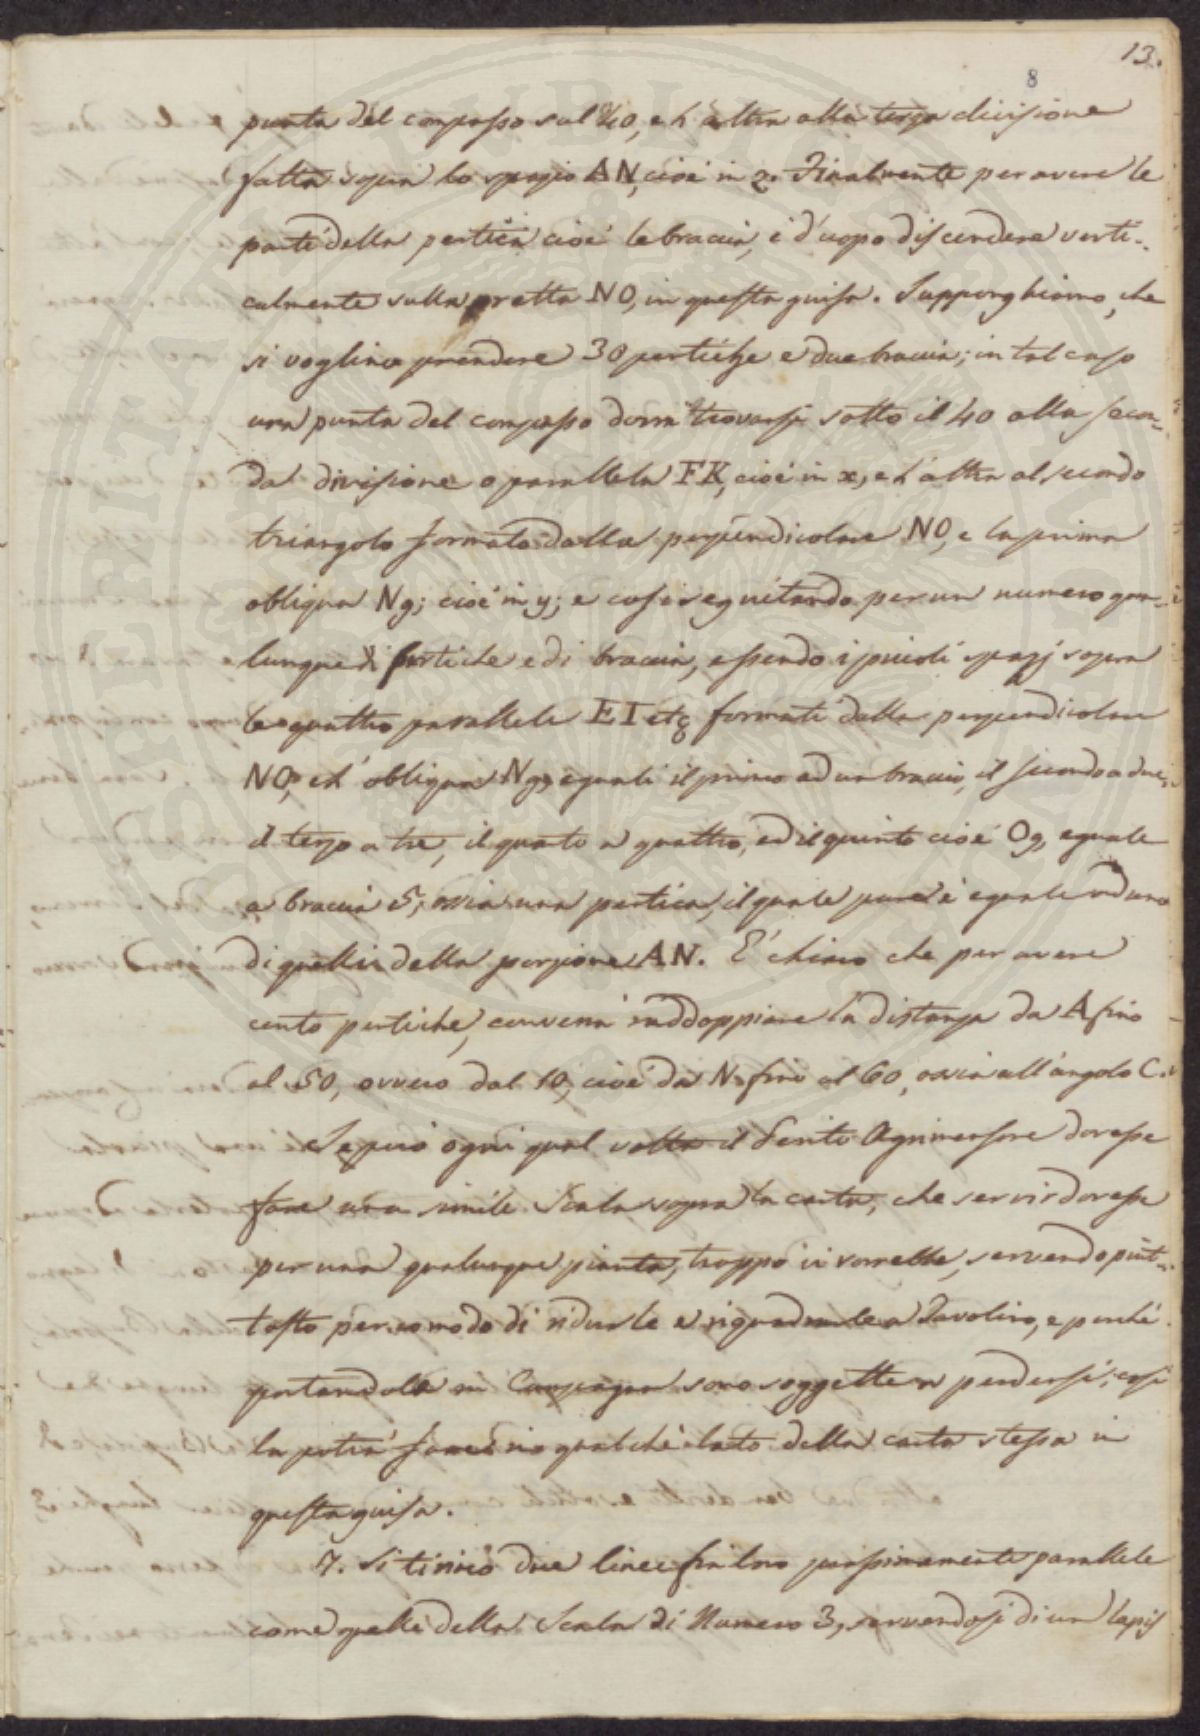 13.
8
punta del compasso sul 40, e l'altra alla terza divisione
fatta sopra lo spazio AN, cioè in z. Finalmente per avere le
parti della pertica cioè le braccia, è d'uopo discendere verti-
calmente sulla retta NO, in questa guisa. Supponghiamo, che
si voglino prendere 30 pertiche e due braccia; in tal caso
una punta del compasso dovrà trovarsi sotto il 40 alla secon-
da divisione o parallela FK, cioè in x, e l'altra al secondo
triangolo formato dalla perpendicolare NO, e la prima
obliqua Ng; cioè in y; e così seguitando per un numero qua-
lunque di pertiche e di braccia, essendo i piccoli spazj sopra
le quattro parallele EI etc formati dalla perpendicolare
NO, e l'obliqua Ng, eguali il primo ad un braccio, il secondo a due,
il terzo a tre, il quarto a quattro, ed il quinto cioè Og, eguale
a braccia 5, ossia una pertica, il quale pure è eguale ad uno
di quelli della porzione AN. E' chiaro che per avere
cento pertiche, converrà raddoppiare la distanza da A fino
al 50, ovvero dal 10, cioè da N fino al 60, ossia all'angolo C.
Se però ogni qual volta il Perito Agrimensore dovesse
fare una simile Scala sopra la carta, che servir dovesse
per una qualunque pianta, troppo ci vorrebbe, servendo piut-
tosto per comodo di ridurle e riquadrarle a Tavolino, e perchè
portandole in Campagna sono soggette a perdersi; così
la potrà fare in qualche lato della carta stessa in
questa guisa.
7. Si tirino due linee fra loro parallele
come quelle della Scala di Numero 3, servendosi di un lapis